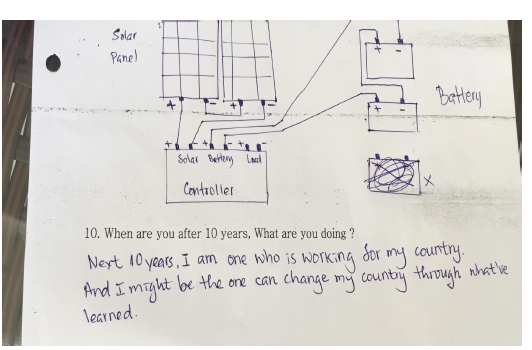 Solar
Panel
+ - + -
+ -
Battery
+ -
+ - + - + -
Solar Battery Load
Controller
X
10. When are you after 10 years, What are you doing ?
Next 10 years, I am one who is working for my country.
And I might be the one can change my country through what've
learned.